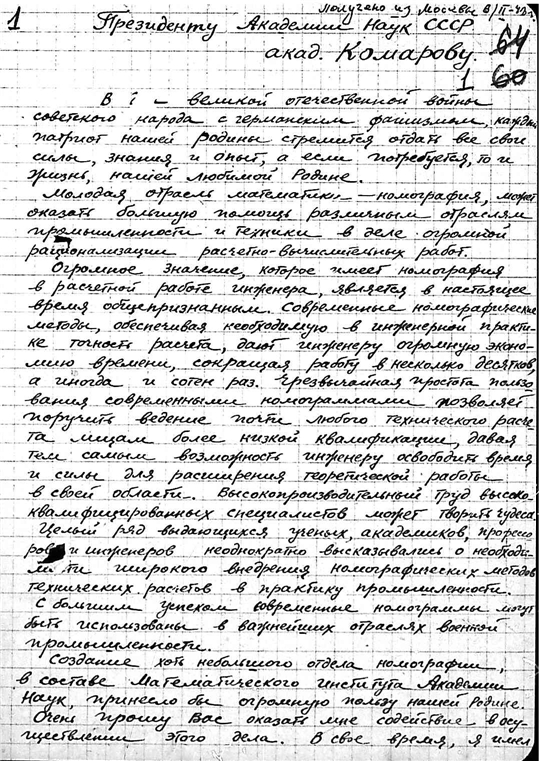 Получено из Москвы 8/II-42г.
1 Президенту Академии Наук СССР
акад. Комарову. 64
1 60
В 1 – великой отечественной войны
советского народа с германским фашизмом, каждый
патриот нашей родины стремится отдать все свои
силы, знания и опыт, а если потребуется, то и
жизнь, нашей любимой Родине.
Молодая отрасль математики – номография, может
оказать большую помощь различным отраслям
промышленности и техники в деле огромной
рационализации расчетно-вычислительных работ.
Огромное значение, которое имеет номография
в расчетной работе инженера, является в настоящее
время общепризнанным. Современные номографические
методы, обеспечивая необходимую в инженерной практи-
ке точность расчета, дают инженеру огромную эконо-
мию времени, сокращая работу в несколько десятков,
а иногда и сотен раз. Чрезвычайная простота пользо-
вания современными номограммами позволяет
поручить ведение почти любого технического расче-
та лицам более низкой квалификации, давая
тем самым возможность инженеру освободить время
и силы для расширения теоретической работы
в своей области. Высокопроизводительный труд высоко-
квалифицированных специалистов может творить чудеса.
Целый ряд выдающихся ученых, академиков, профессо-
ров и инженеров неоднократно высказывались о необходи-
мости широкого внедрения номографических методов
технических расчетов в практику промышленности.
С большим успехом современные номограммы могут
быть использованы в важнейших отраслях военной
промышленности.
Создание хоть небольшого отдела номографии,
в составе Математического института Академии
Наук, принесло бы огромную пользу нашей Родине.
Очень прошу Вас оказать мне содействие в осу-
ществлении этого дела. В свое время, я имел